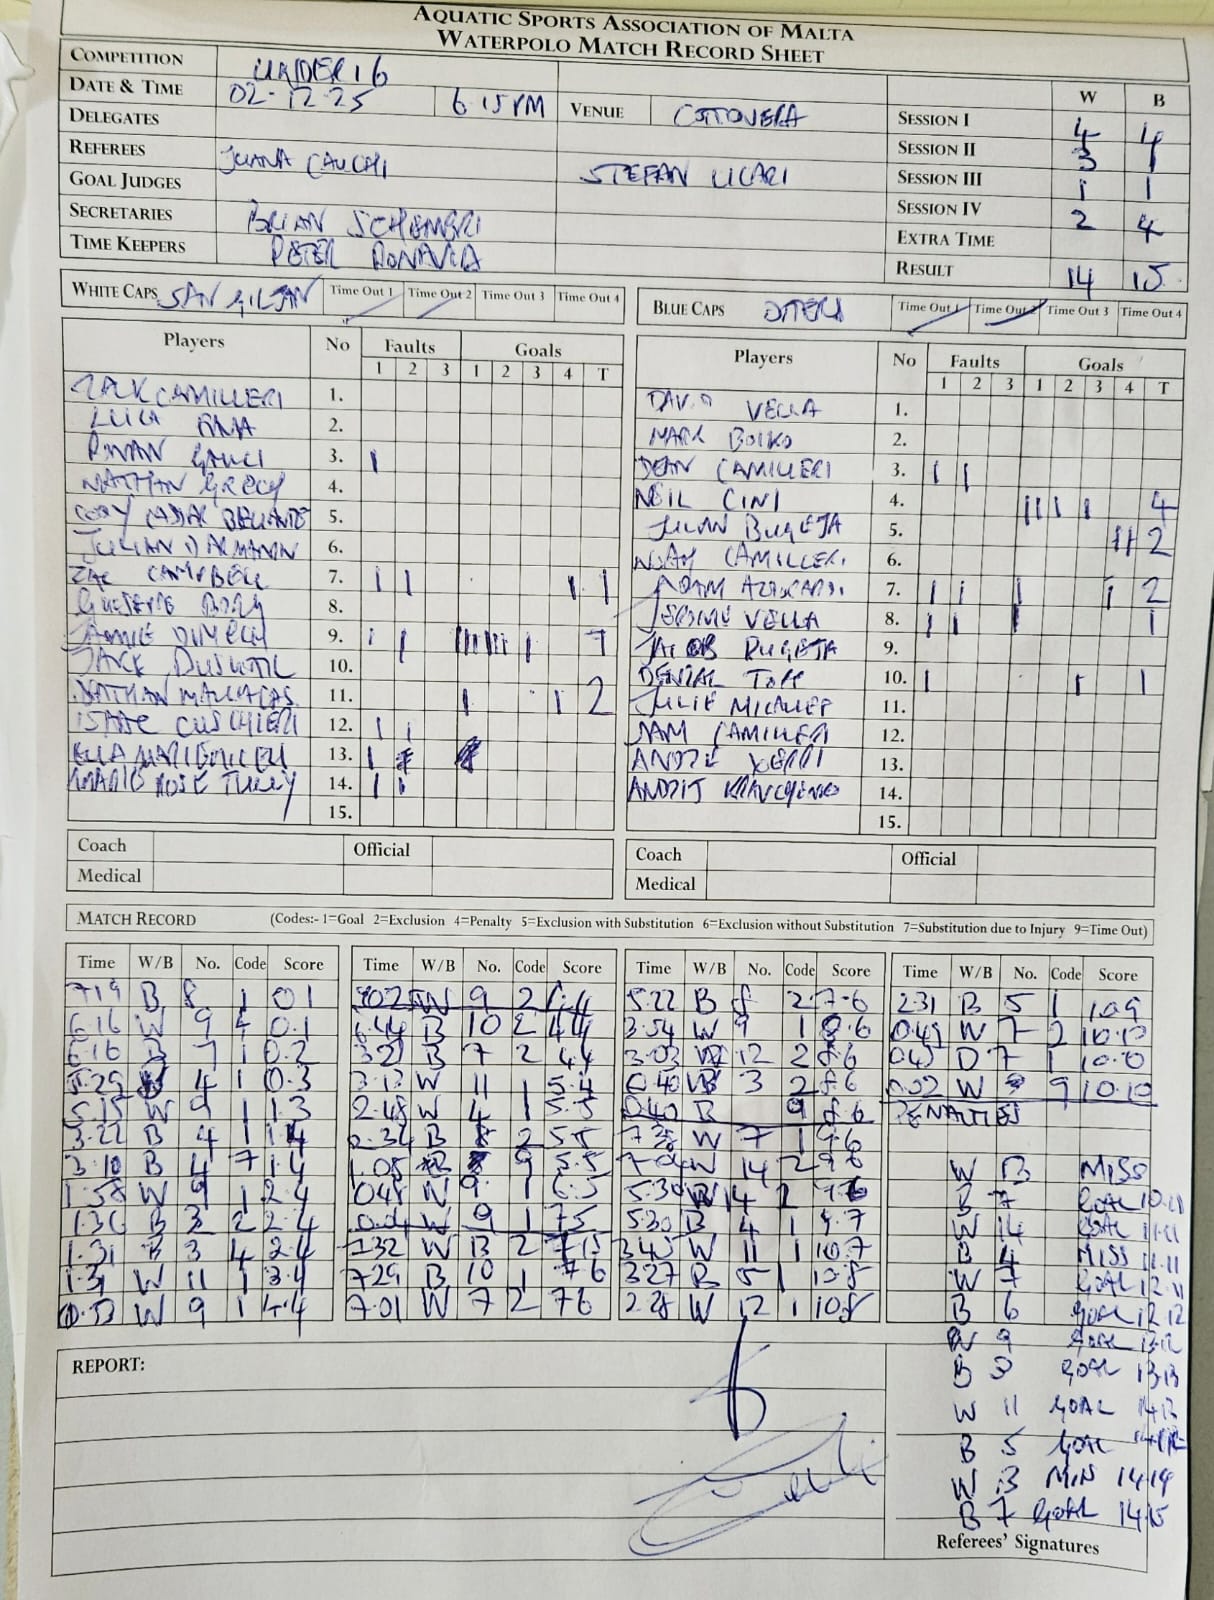 AQUATIC SPORTS ASSOCIATION OF MALTA
WATERPOLO MATCH RECORD SHEET
COMPETITION UNDER 16
DATE & TIME 02-12-25 6.15PM VENUE COTTONERA
DELEGATES
REFEREES CAUCHI STEFAN LICARI
GOAL JUDGES
SECRETARIES BRIAN SCHEMBRI
TIME KEEPERS PETER BONAVIA
W B
SESSION I 4 4
SESSION II 3 1
SESSION III 1 1
SESSION IV 2 4
EXTRA TIME
RESULT 14 15
WHITE CAPS SAN GILJAN Time Out 1 Time Out 2 Time Out 3 Time Out 4
BLUE CAPS Time Out 1 Time Out 2 Time Out 3 Time Out 4
Players No Faults Goals
1 2 3 1 2 3 4 T
ZACK CAMILLERI 1.
LUCA 2.
GAUCI 3. |
NATHAN GRECH 4.
5.
JULIAN DARMANIN 6.
ZAC CAMPBELL 7. | | | 1
8.
JAMIE DIMECH 9. | | 7
JACK 10.
NATHAN 11. | | 2
ISAAC CUSCHIERI 12. | |
13. |
TULLY 14. | |
15.
Players No Faults Goals
1 2 3 1 2 3 4 T
DAVID VELLA 1.
MARK BOIKO 2.
DEAN CAMILLERI 3. | |
NEIL CINI 4. |||| | 4
JULIAN BUGEJA 5. || 2
NOAH CAMILLERI 6.
ADAM AZZOPARDI 7. | | | | 2
JEROME VELLA 8. | | | 1
JACOB BUGEJA 9.
DENZIL 10. | | 1
JULIE MICALLEF 11.
SAM CAMILLERI 12.
ANDRE XERRI 13.
ANDRIJ KRAVCHENKO 14.
15.
Coach Official
Medical
Coach Official
Medical
MATCH RECORD (Codes:- 1=Goal 2=Exclusion 4=Penalty 5=Exclusion with Substitution 6=Exclusion without Substitution 7=Substitution due to Injury 9=Time Out)
Time W/B No. Code Score
7.19 B 8 1 0 1
6.16 W 9 4 0.1
6.16 B 7 1 0.2
5.29 4 1 0.3
5.15 W 9 1 1.3
3.22 B 4 1 1.4
3.10 B 4 7 1.4
1.58 W 9 1 2.4
1.36 B 3 2 2.4
1.31 B 3 4 2.4
1.31 W 11 1 3.4
0.53 W 9 1 4.4
Time W/B No. Code Score
W 9 2
B 10 2 4.4
3.29 B 7 2 4.4
3.13 W 11 1 5.4
2.48 W 4 1 5.5
2.34 B 8 2 5.5
1.05 B 9 5.5
0.48 W 9 1 6.5
0.04 W 9 1 7.5
7.32 W 13 2
7.29 B 10 1 7.6
7.01 W 7 2 7.6
Time W/B No. Code Score
5.22 B 8 2 7.6
3.54 W 9 1 8.6
3.03 W 12 2 8.6
0.40 W 3 2 8.6
0.40 B 9 8.6
7.38 W 7 1 9.6
7.04 W 14 2 9.6
5.30 W 14 2
5.30 B 4 1 9.7
3.45 W 11 1 10.7
3.27 B 5 1 10.8
2.28 W 12 1 10.8
Time W/B No. Code Score
2.31 B 5 1 10.9
0.45 W 7 2
0.45 7 1
0.02 W 9 10.10
PENALTIES
W 13 MISS
B 7 GOAL 10.11
W 14 GOAL 11.11
B 4 MISS 11.11
W 7 GOAL 12.11
B 6 GOAL 12.12
W 9 GOAL 13.12
B 3 GOAL 13.13
W 11 GOAL 14.13
B 5 GOAL
W 13 MISS 14 14
B 7 GOAL 14 15
REPORT:
Referees' Signatures